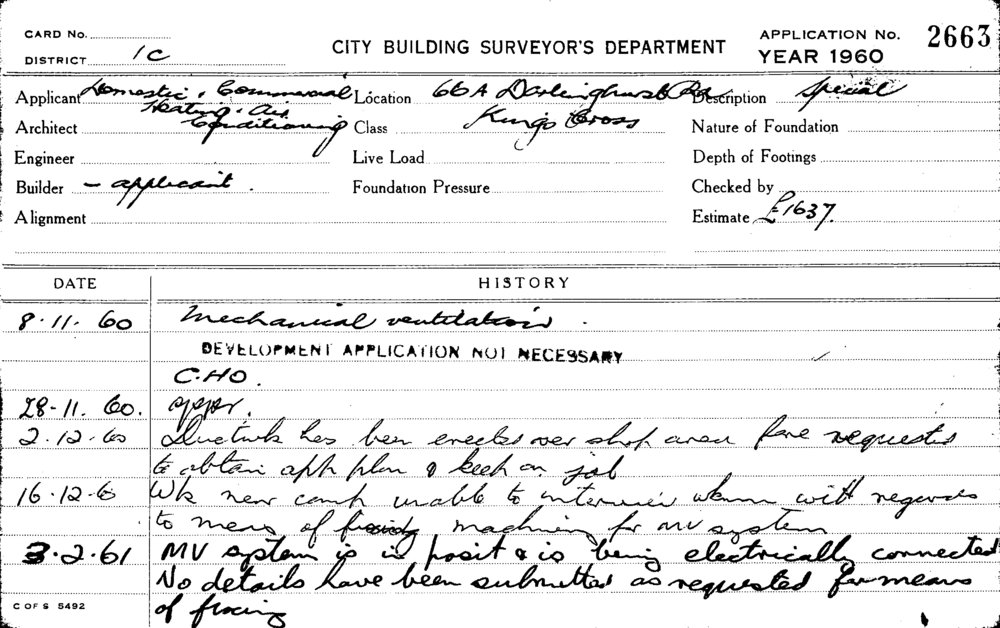 CARD No.
DISTRICT 1C
CITY BUILDING SURVEYOR'S DEPARTMENT
APPLICATION No. 2663
YEAR 1960
Applicant Domestic & Commercial Heating & Air Conditioning
Location 66A Darlinghurst Rd Kings Cross
Description Special
Architect
Class
Nature of Foundation
Engineer
Live Load
Depth of Footings
Builder - applicant.
Foundation Pressure
Checked by
Alignment
Estimate £1637.
DATE HISTORY
8.11.60 Mechanical ventilation.
DEVELOPMENT APPLICATION NOT NECESSARY
C.H.O.
28-11.60. appr.
2.12.60 Ductwk has been erected over shop area requested
to obtain app plan & keep on job
16.12.60 Wk near comp unable to interview with regards
to means of machinery for MV system
3.2.61 MV system is in posit & is being electrically connected
No details have been submitted as requested for means
of
C OF S 5492